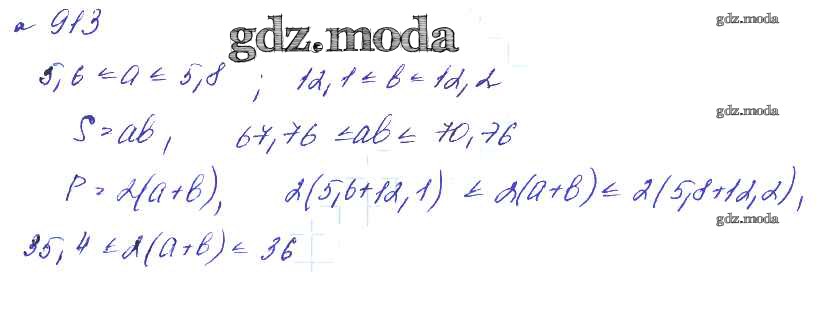 № 913
gdz.moda
gdz.moda
5,6 ≤ a ≤ 5,8 ; 12,1 ≤ b ≤ 12,2
gdz.moda
S = ab, 67,76 ≤ ab ≤ 70,76
P = 2(a+b), 2(5,6+12,1) ≤ 2(a+b) ≤ 2(5,8+12,2),
gdz.moda
35,4 ≤ 2(a+b) ≤ 36